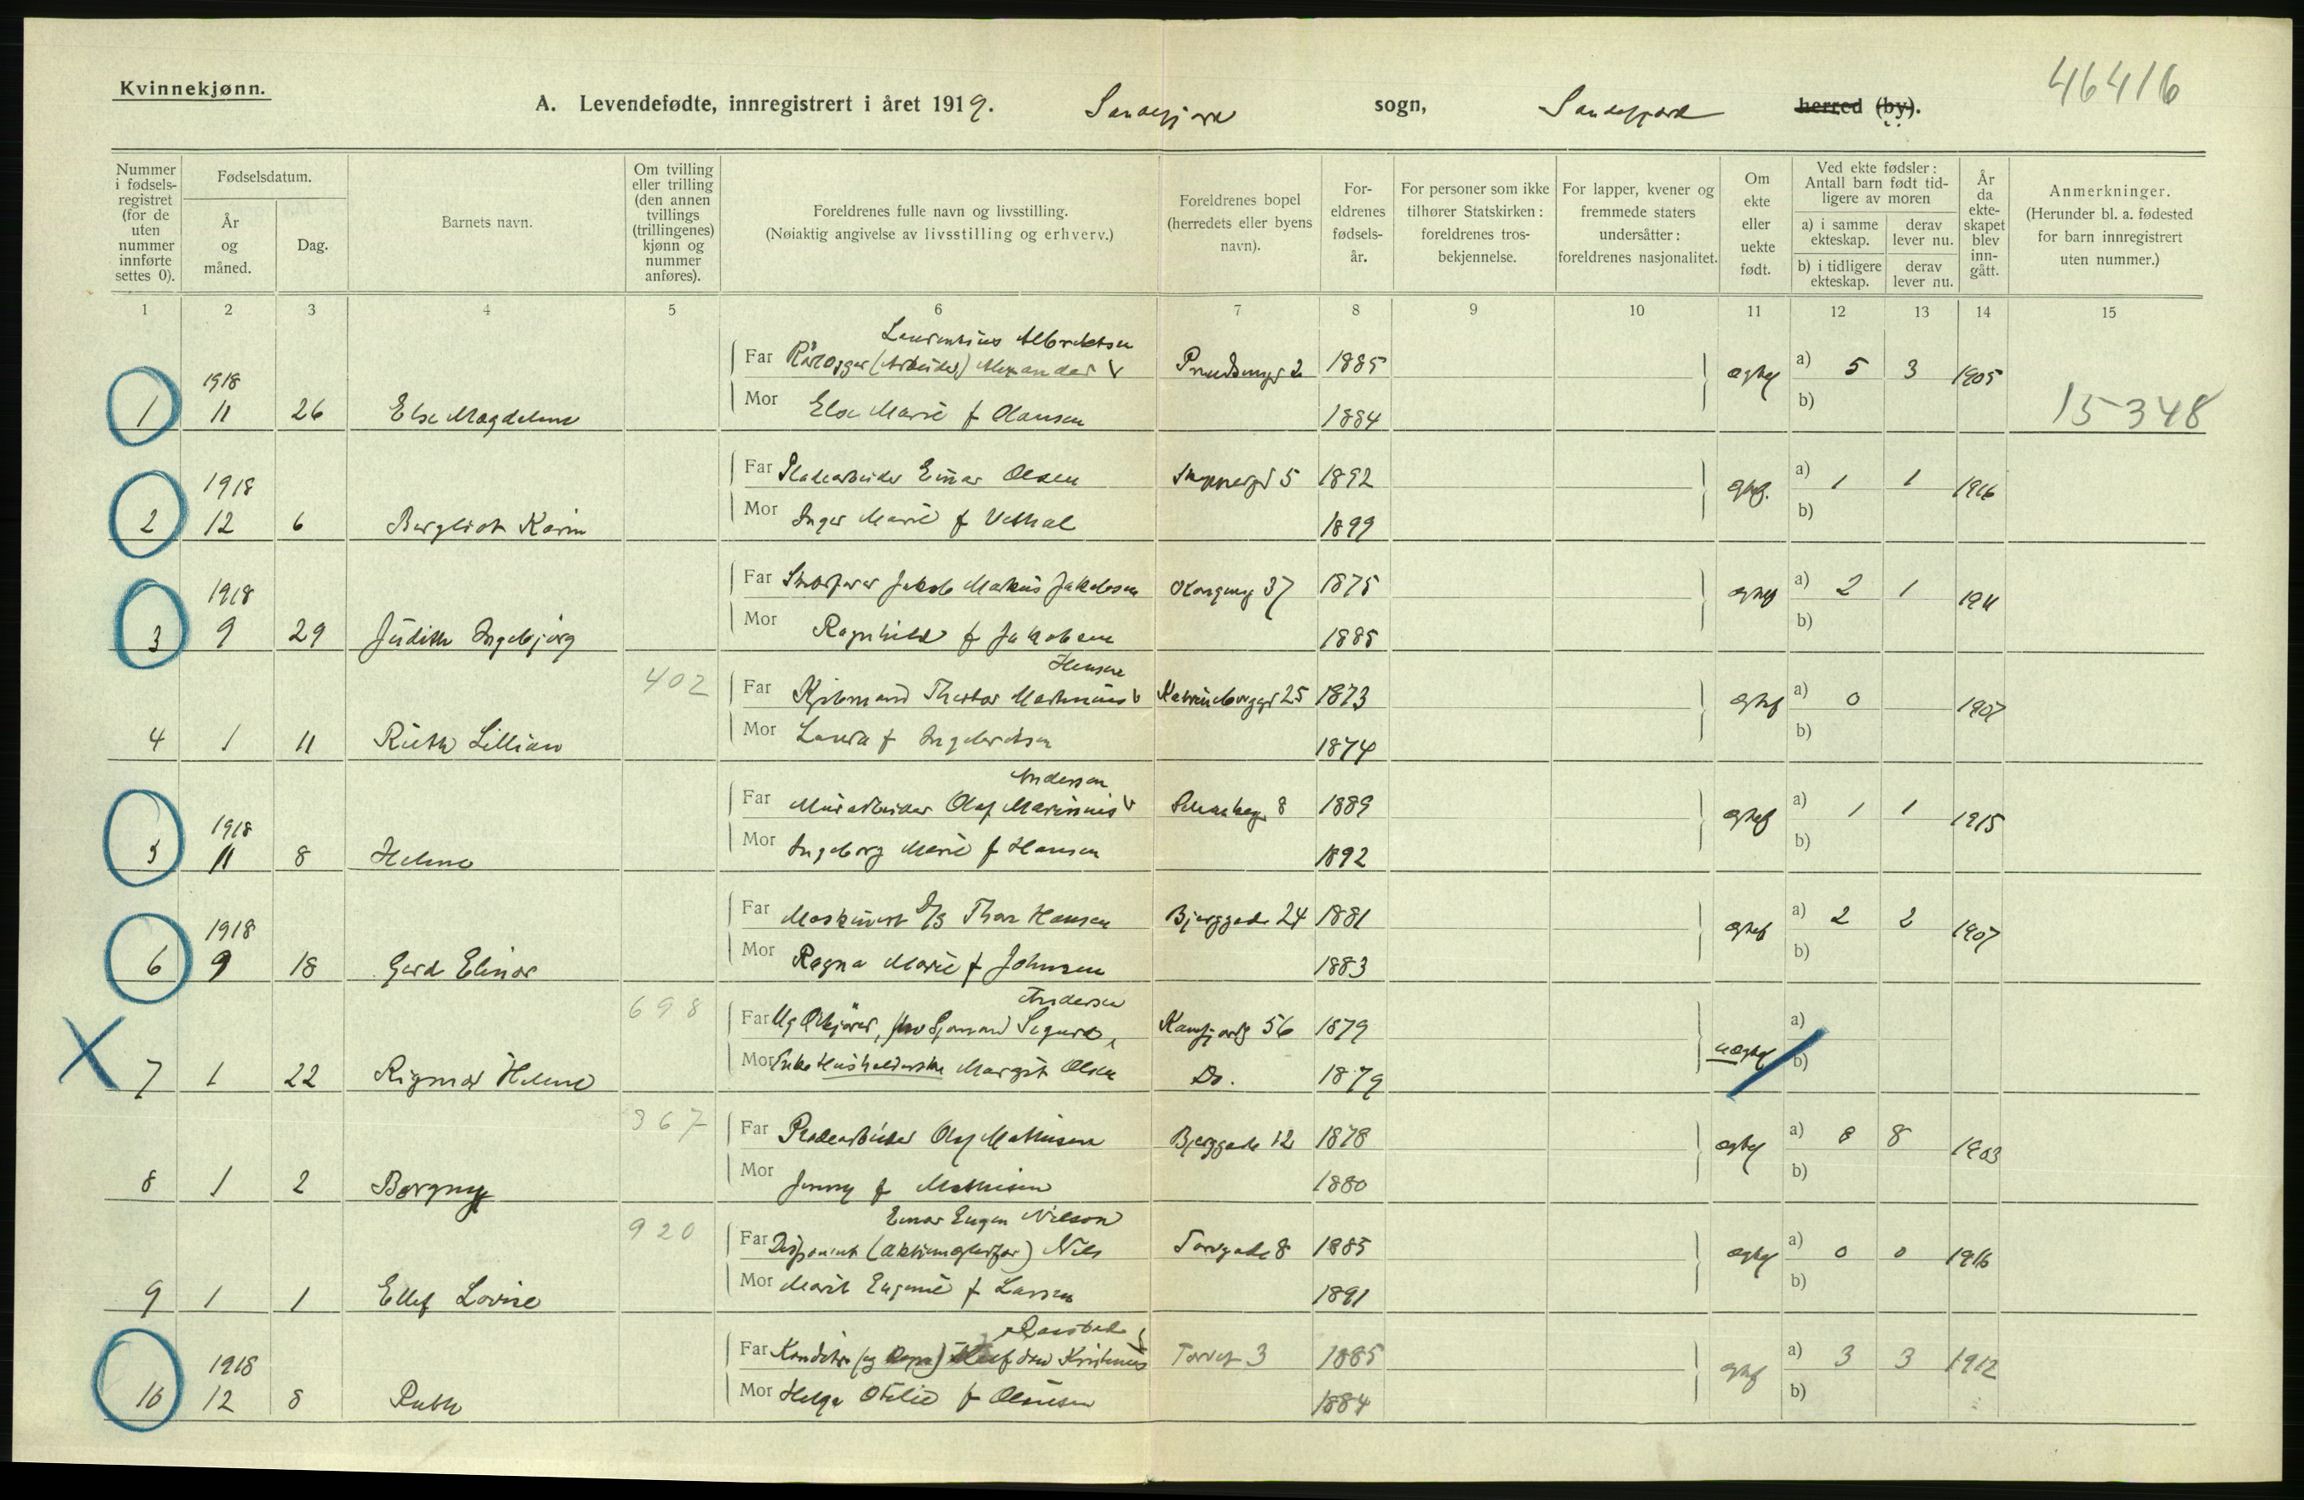 Kvinnekjønn.
46416
A. Levendefødte, innregistrert i året 1919. Sandefjord sogn, Sandefjord herred (by).
Nummer i fødsels- registret (for de uten nummer innførte settes 0).
Fødselsdatum.
År og måned.
Dag.
Barnets navn.
Om tvilling eller trilling (den annen tvillings (trillingenes) kjønn og nummer anføres).
Foreldrenes fulle navn og livsstilling. (Nøiaktig angivelse av livsstilling og erhverv.)
Foreldrenes bopel (herredets eller byens navn).
For- eldrenes fødsels- år.
For personer som ikke tilhører Statskirken: foreldrenes tros- bekjennelse.
For lapper, kvener og fremmede staters undersåtter: foreldrenes nasjonalitet.
Om ekte eller uekte født.
Ved ekte fødsler: Antall barn født tid- ligere av moren
a) i samme ekteskap.
derav lever nu.
b) i tidligere ekteskap.
derav lever nu.
År da ekte- skapet blev inn- gått.
Anmerkninger. (Herunder bl. a. fødested for barn innregistrert uten nummer.)
1 2 3 4 5 6 7 8 9 10 11 12 13 14 15
Laurentius Albretsen
Far (Arbeider) Alexander 2 1885 a) 5 3 1905
1918
1 11 26 Else Magdelene Mor Else Marie f Olausen 1884 ægtef b) 15348
Far Pladearbeider Einar Olsen 5 1892 a) 1 1 1916
1918
2 12 6 Bergliot Karin Mor Inger Marie f Vethal 1899 b)
Far Jakob Markus Jakobsen 37 1875 ægtef a) 2 1 1911
1918
3 9 29 Judith Ingebjørg Mor Ragnhild f Jakobsen 1885 b)
402 Hansen
Far Kjøbmand Martinius 25 1873 ægtef a) 0 1907
4 1 11 Ruth Lillian Mor Laura f Ingebretsen 1874 b)
Andersen
Far Murarbeider Olaf Marinius 8 1889 ægtef a) 1 1 1915
1918
5 11 8 Helene Mor Ingeborg Marie f Hansen 1892 b)
Far Maskinist Thor Hansen Bjerggade 24 1881 ægtef a) 2 2 1907
1918
6 9 18 Gerd Elinor Mor Ragna Marie f Johnsen 1883 b)
698 Andersen
Far Sjømand Sigurd 56 1879 a)
X 7 1 22 Rigmor Helene Mor Enke Husholderske Margit Olsen Do. 1879 uægtef b)
367
Far Pladearbeider Olaf Mathisen Bjerggade 12 1878 ægtef a) 8 8 1903
8 1 2 Borgny Mor Jenny f Mathisen 1880 b)
920 Einar Eugen Nilson
Far Disponent Nils Torvgade 8 1885 ægtef a) 0 0 1916
9 1 1 Ellef Lovise Mor Marit Eugenie f Larsen 1891 b)
Far Konditor Torvet 3 1885 ægtef a) 3 3 1912
1918
10 12 8 Ruth Mor Helga Otilie f Olausen 1884 b)